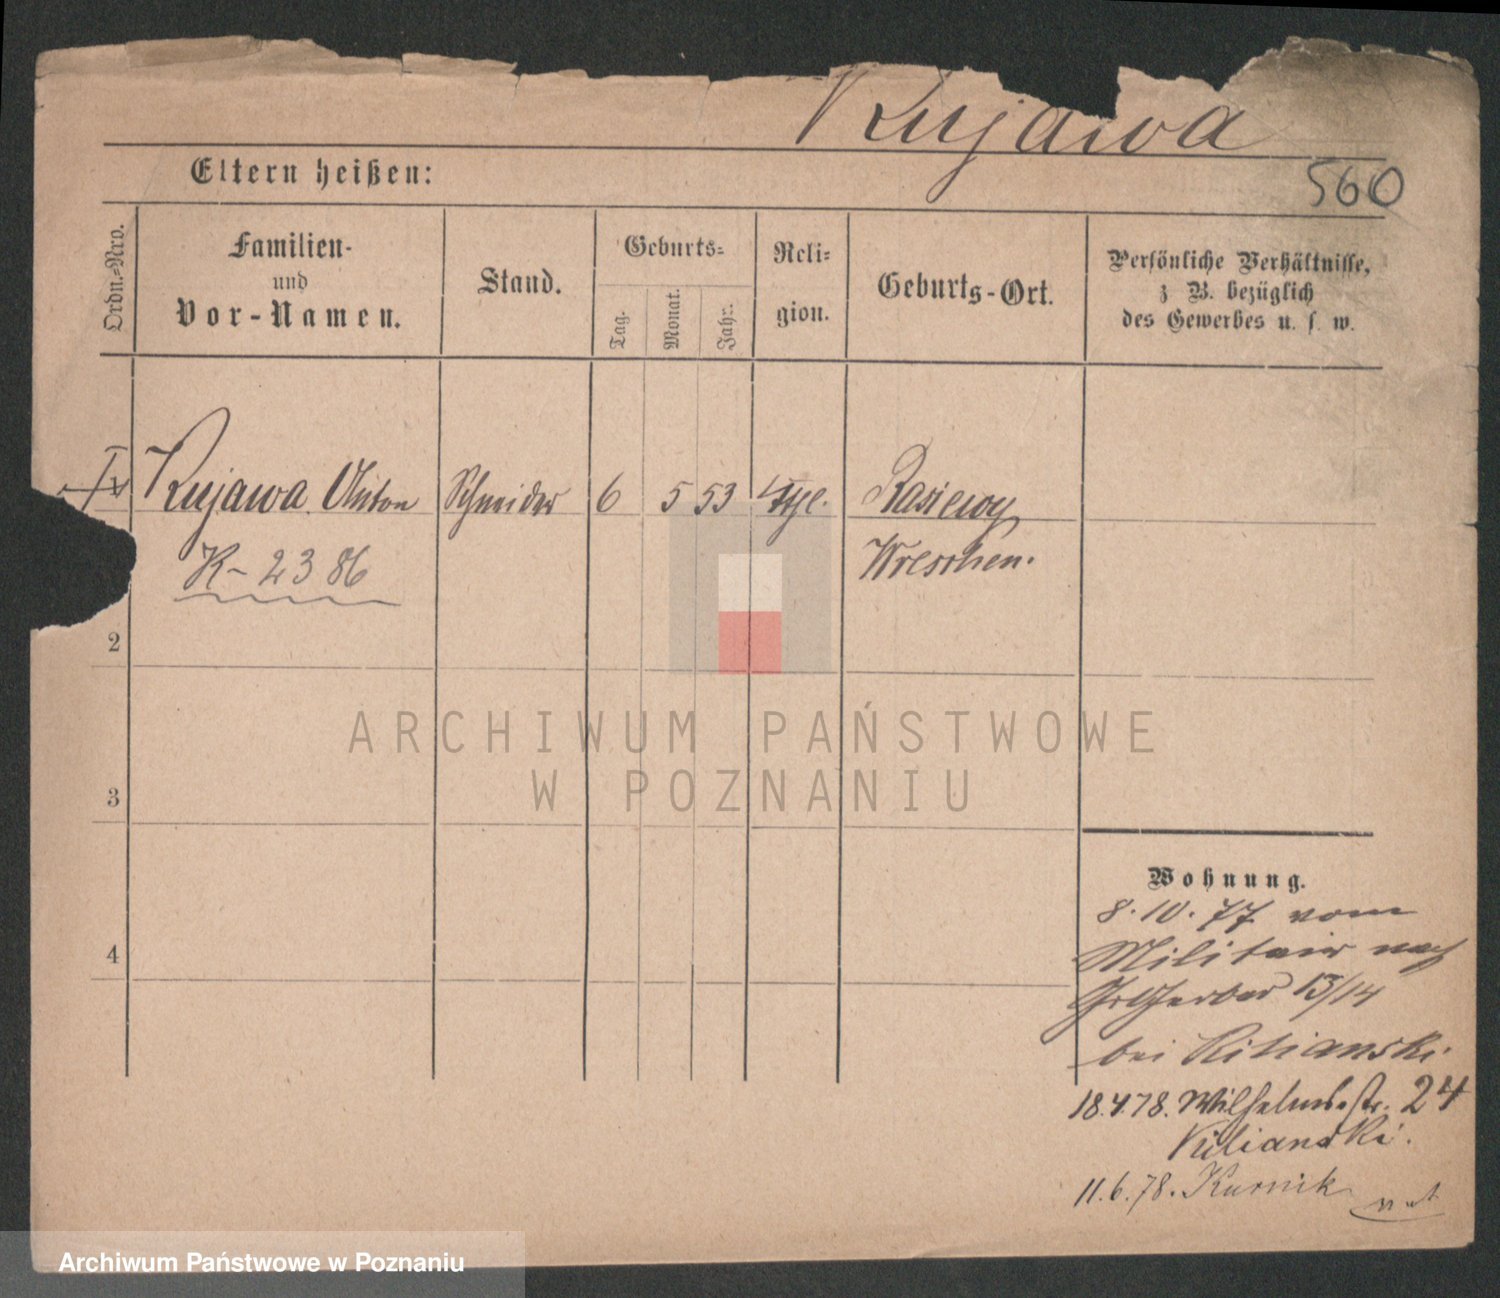 Kujawa
560
Eltern heißen:
Ordn.-Nro.
Familien-
und
Vor-Namen.
Stand.
Geburts-
Tag.
Monat.
Jahr.
Reli-
gion.
Geburts-Ort.
Persönliche Verhältnisse,
z B. bezüglich
des Gewerbes u. s. w.
Kujawa Anton Schneider 6 5 53
Wreschen.
K- 2386
2
3
4
ARCHIWUM PAŃSTWOWE
W POZNANIU
Wohnung.
8.10.77 vom
Militair nach
Gr Gerber 13/14
bei Kilianski
18.4.78. Wilhelmsstr. 24
Kilianski.
11.6.78. Kurnik
Archiwum Państwowe w Poznaniu